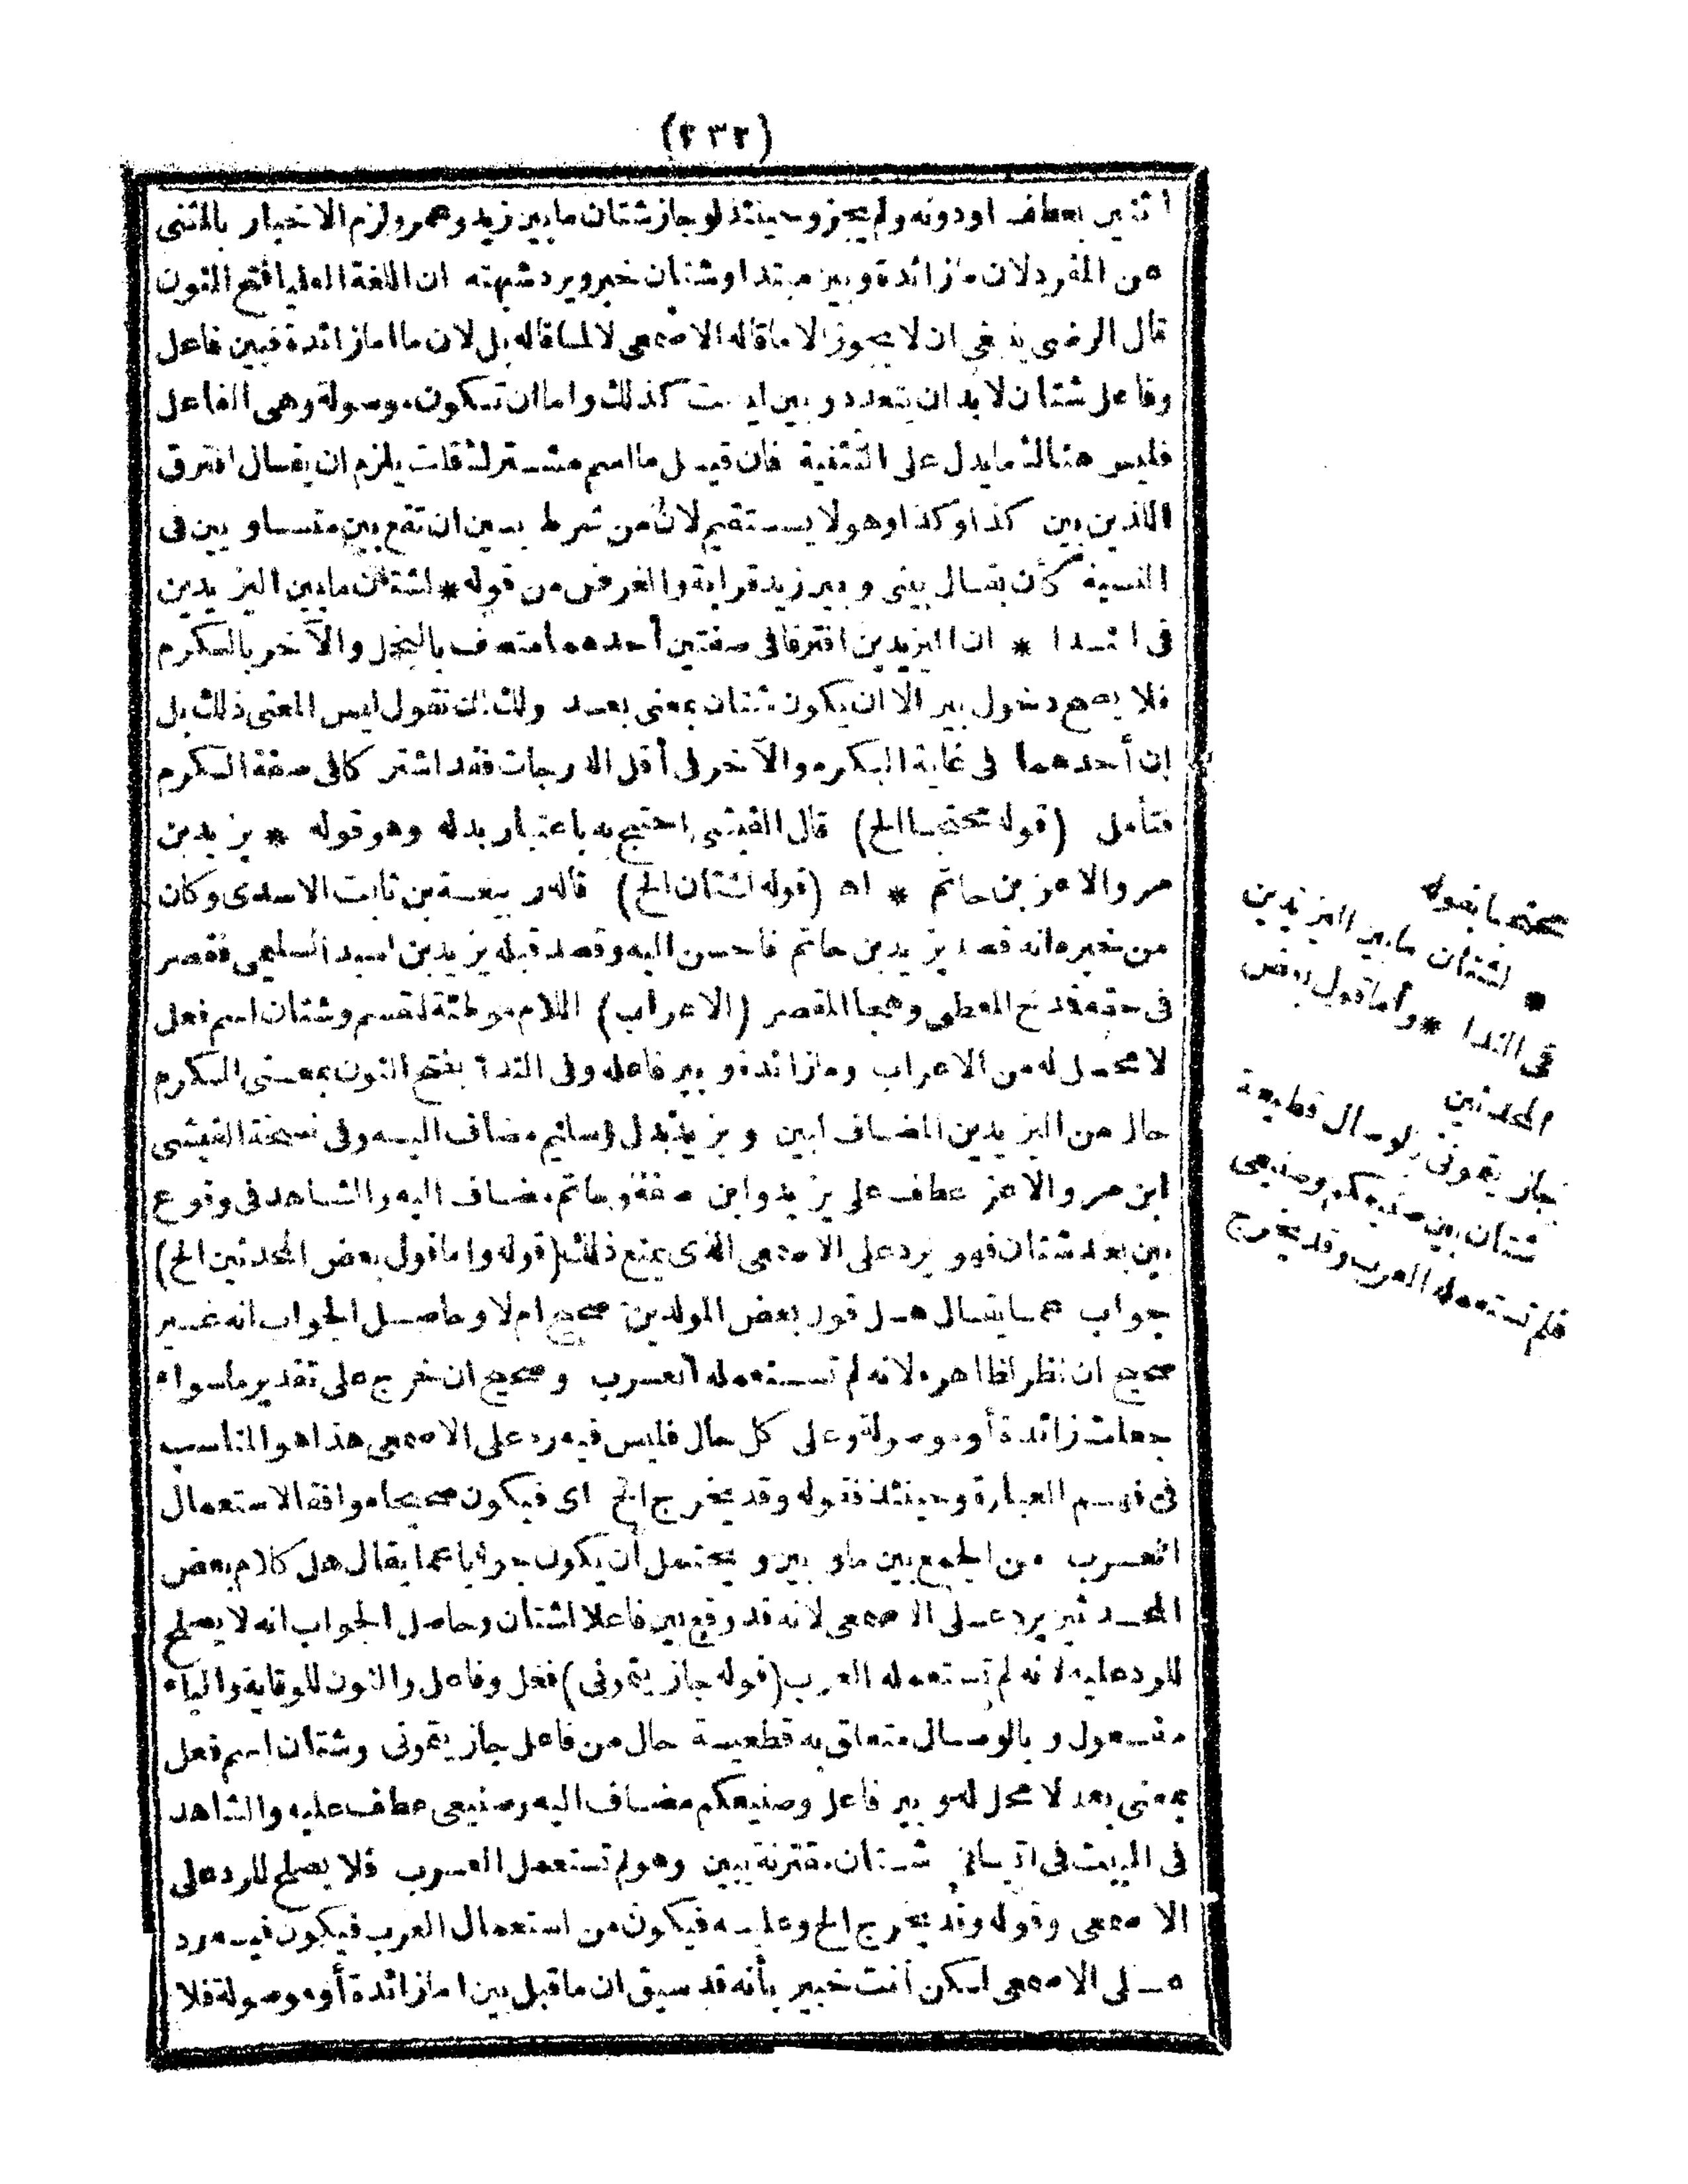 (٢٣٢)
اثنين بعطف اودونه ولم يجز وحينئذ لو جاز شتان مابين زيد وعمرو لزم الاخبار بالمثنى
عن المفرد لان ما زائدة وبين مبتدا وشتان خبر ويرد شبهته ان اللغة العليا فتح النون
قال الرضى ينبغى ان لا يجوز الا ماقاله الاصمعى لا لما قاله بل لان ما اما زائدة فبين فاعل
وفاعل شتان لابد ان يتعدد وبين ليست كذلك واما ان تكون موصولة وهى الفاعل
فليس هناك مايدل على التثنية فان قيل ما اسم مشترك قلت يلزم ان يقال افترق
اللذين بين كذا وكذا وهو لا يستقيم لان من شرط بين ان تقع بين متساويين فى
النسبة كأن يقال بينى وبين زيد قرابة والغرض من قوله * لشتان مابين اليزيدين
فى الندا * ان اليزيدين افترقا فى صفتين أحدهما متصف بالبخل والآخر بالكرم
فلا يصح دخول بين الا ان يكون شتان بمعنى بعد ولك ان تقول ليس المعنى ذلك بل
ان أحدهما فى غاية الكرم والآخر فى أقل الدرجات فقد اشتركا فى صفة الكرم
فتأمل (قوله محتجا الخ) قال الفيشى احتج به باعتبار بدله وهو قوله * يزيد بن
عمر والاعز بن حاتم * اه (قوله لشتان الخ) قاله ربيعة بن ثابت الاسدى وكان
من خبره انه قصد يزيد بن حاتم فاحسن اليه وقصد قبله يزيد بن اسيد السليمى فقصر
فى حقه فدح المعطى وهجا المقصر (الاعراب) اللام موطئة لقسم وشتان اسم فعل
لا محل له من الاعراب وما زائدة وبين فاعله وفى الندا بفتح النون بمعنى الكرم
حال من اليزيدين المضاف لبين ويزيد بدل وسليم مضاف اليه وفى نسخة الفيشى
ابن عمر والاعز عطف على يزيد وابن صفة وحاتم مضاف اليه والشاهد فى وقوع
بين بعد شتان فهو يرد على الاصمعى الذى يمنع ذلك (قوله واما قول بعض المحدثين الخ)
جواب عما يقال هل قول بعض المولدين صحيح ام لا وحاصل الجواب انه غير
صحيح ان نظر لظاهره لانه لم تستعمله العرب وصحيح ان خرج على تقدير ما سواء
جعلت زائدة أو موصولة وعلى كل حال فليس فيه رد على الاصمعى هذا هو المناسب
فى فهم العبارة وحينئذ فقوله وقد يخرج الخ اى فيكون صحيحا موافقا لاستعمال
العرب من الجمع بين ما وبين ويحتمل أن يكون جوابا عما يقال هل كلام بعض
المحدثين يرد على الاصمعى لانه قد وقع بين فاعلا لشتان وحاصل الجواب انه لا يصلح
للرد عليه لانه لم تستعمله العرب (قوله جازيتمونى) فعل وفاعل والنون للوقاية والياء
مفعول وبالوصال متعلق به قطعية حال من فاعل جازيتمونى وشتان اسم فعل
بمعنى بعد لا محل له وبين فاعل وصنيعكم مضاف اليه وصنيعى عطف عليه والشاهد
فى البيت فى اتيانه شتان مقترنة ببين وهو لم تستعمل العرب فلا يصلح للرد على
الاصمعى وقوله وقد يخرج الخ وعليه فيكون من استعمال العرب فيكون فيه رد
على الاصمعى لكن أنت خبير بأنه قد سبق ان ما قبل بين اما زائدة أو موصولة فلا
محتجا بقوله
* لشتان مابين اليزيدين
فى الندا * وأما قول بعض
المحدثين
جازيتمونى بالوصال قطيعة
شتان بين صنيعكم وصنيعى
فلم تستعمله العرب وقد يخرج